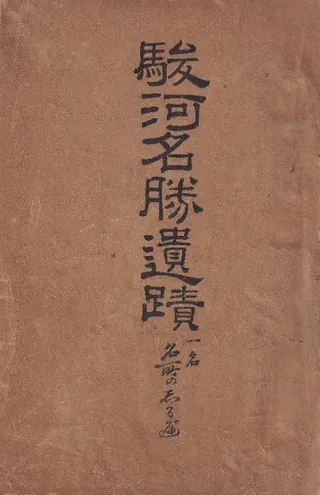 駿河名勝遺蹟
一名
名所のしるべ